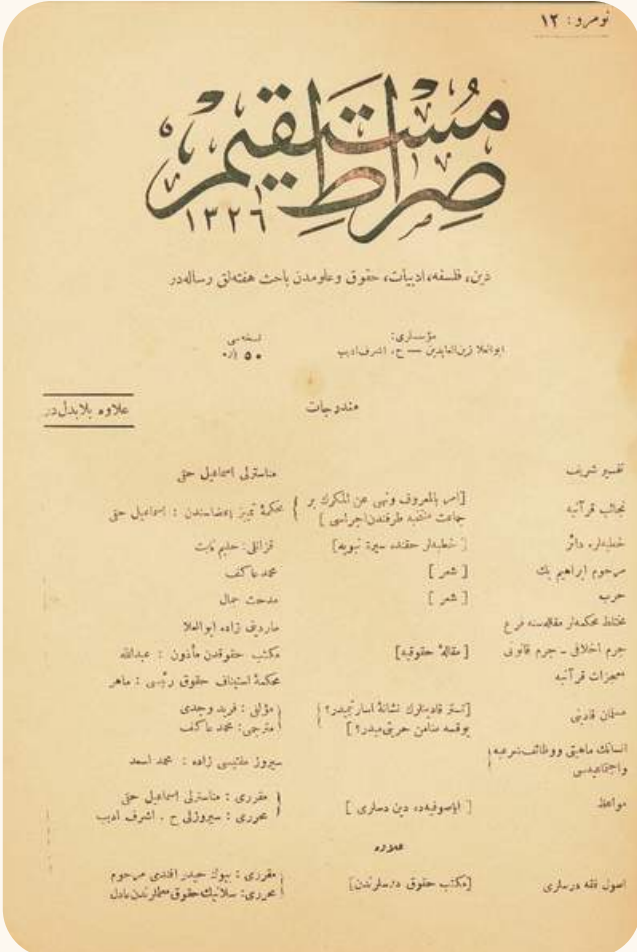 نومرو : ١٢
صِراطِ مُستقيم
١٣٢٦
دين، فلسفه، ادبيات، حقوق وعلومدن باحث هفته‌لق رساله‌در
مؤسسلری:
ابوالعلا زين‌العابدين — ح. اشرف اديب
نسخه‌سی
٥٠ پاره
مندرجات
علاوه بلابدل‌در
تفسير شريف مناسترلی اسماعيل حقی
نجائب قرآنيه [امر بالمعروف ونهی عن المنكرك بر جماعت منتخبه طرفندن اجراسی] محكمۀ تمييز اعضاسندن : اسماعيل حقی
خطبه‌لره دائر [خطبه‌لر حقنده سيرۀ نبويه] قزانلی: حليم ثابت
مرحوم ابراهيم بك [شعر] محمد عاكف
حرب [شعر] مدحت جمال
مختلط محكمه‌لر مقاله‌سنه فرع ماردينی زاده ابوالعلا
جرم اخلاقی ـ جرم قانونی [مقالۀ حقوقيه] مكتب حقوقدن مأذون : عبدالله
معجزات قرآنيه محكمۀ استيناف حقوق رئيسی : ماهر
مسلمان قادينی [تستر قادينلرك نشانۀ اسارتيميدر؟ يوقسه ضامن حريتی‌ميدر؟] مؤلفی : فريد وجدی
مترجمی: محمد عاكف
انسانك ماهيتی ووظائف شرعيه واجتماعيه‌سی سيروز مفتيسی زاده : محمد اسعد
مواعظ [اياصوفيه‌ده دين درسلری] مقرری : مناسترلی اسماعيل حقی
محرری : سيروزلی ح . اشرف اديب
علاوه
اصول فقه درسلری [مكتب حقوق درسلرندن] مقرری : بيوك حيدر افندی مرحوم
محرری: سلانيك حقوق معلملرندن عادل